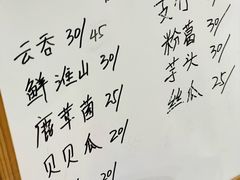 云吞 30/45
鲜淮山 30/
鹿茸菌 25/
贝贝瓜 20/
20/
粉葛 30/
芋头 30/
丝瓜 25/